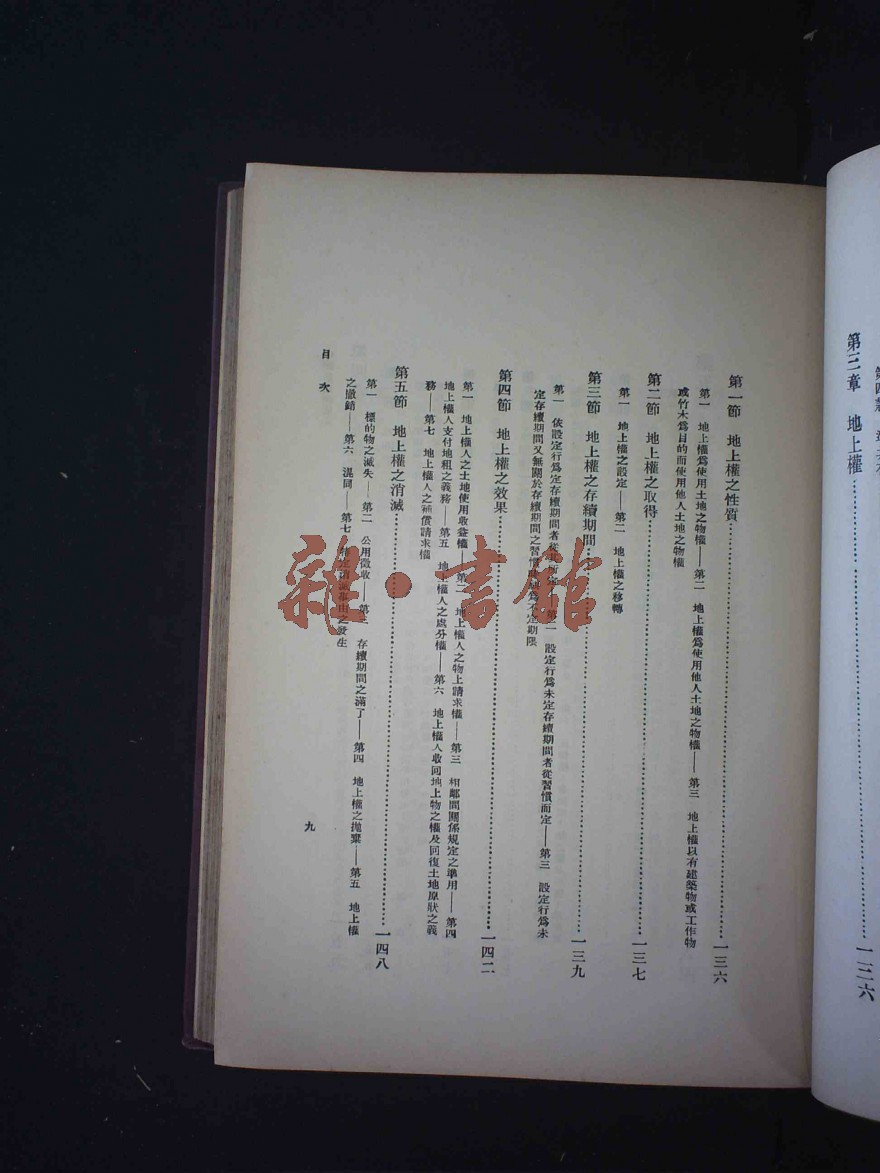 第三章　地上權……一三六
第一節　地上權之性質……一三六
第一　地上權爲使用土地之物權——第二　地上權爲使用他人土地之物權——第三　地上權以有建築物或工作物
或竹木爲目的而使用他人土地之物權
第二節　地上權之取得……一三七
第一　地上權之設定——第二　地上權之移轉
第三節　地上權之存續期間……一三九
第一　依設定行爲定存續期間者從其所定——第二　設定行爲未定存續期間者從習慣而定——第三　設定行爲未
定存續期間又無關於存續期間之習慣時爲不定期限
第四節　地上權之效果……一四二
第一　地上權人之土地使用收益權——第二　地上權人之物上請求權——第三　相鄰間關係規定之準用——第四
地上權人支付地租之義務——第五　地上權人之處分權——第六　地上權人收回地上物之權及回復土地原狀之義
務——第七　地上權人之補償請求權
第五節　地上權之消滅……一四八
第一　標的物之滅失——第二　公用徵收——第三　存續期間之滿了——第四　地上權之拋棄——第五　地上權
之撤銷——第六　混同——第七　約定消滅事由之發生
目次
九
雜·書館